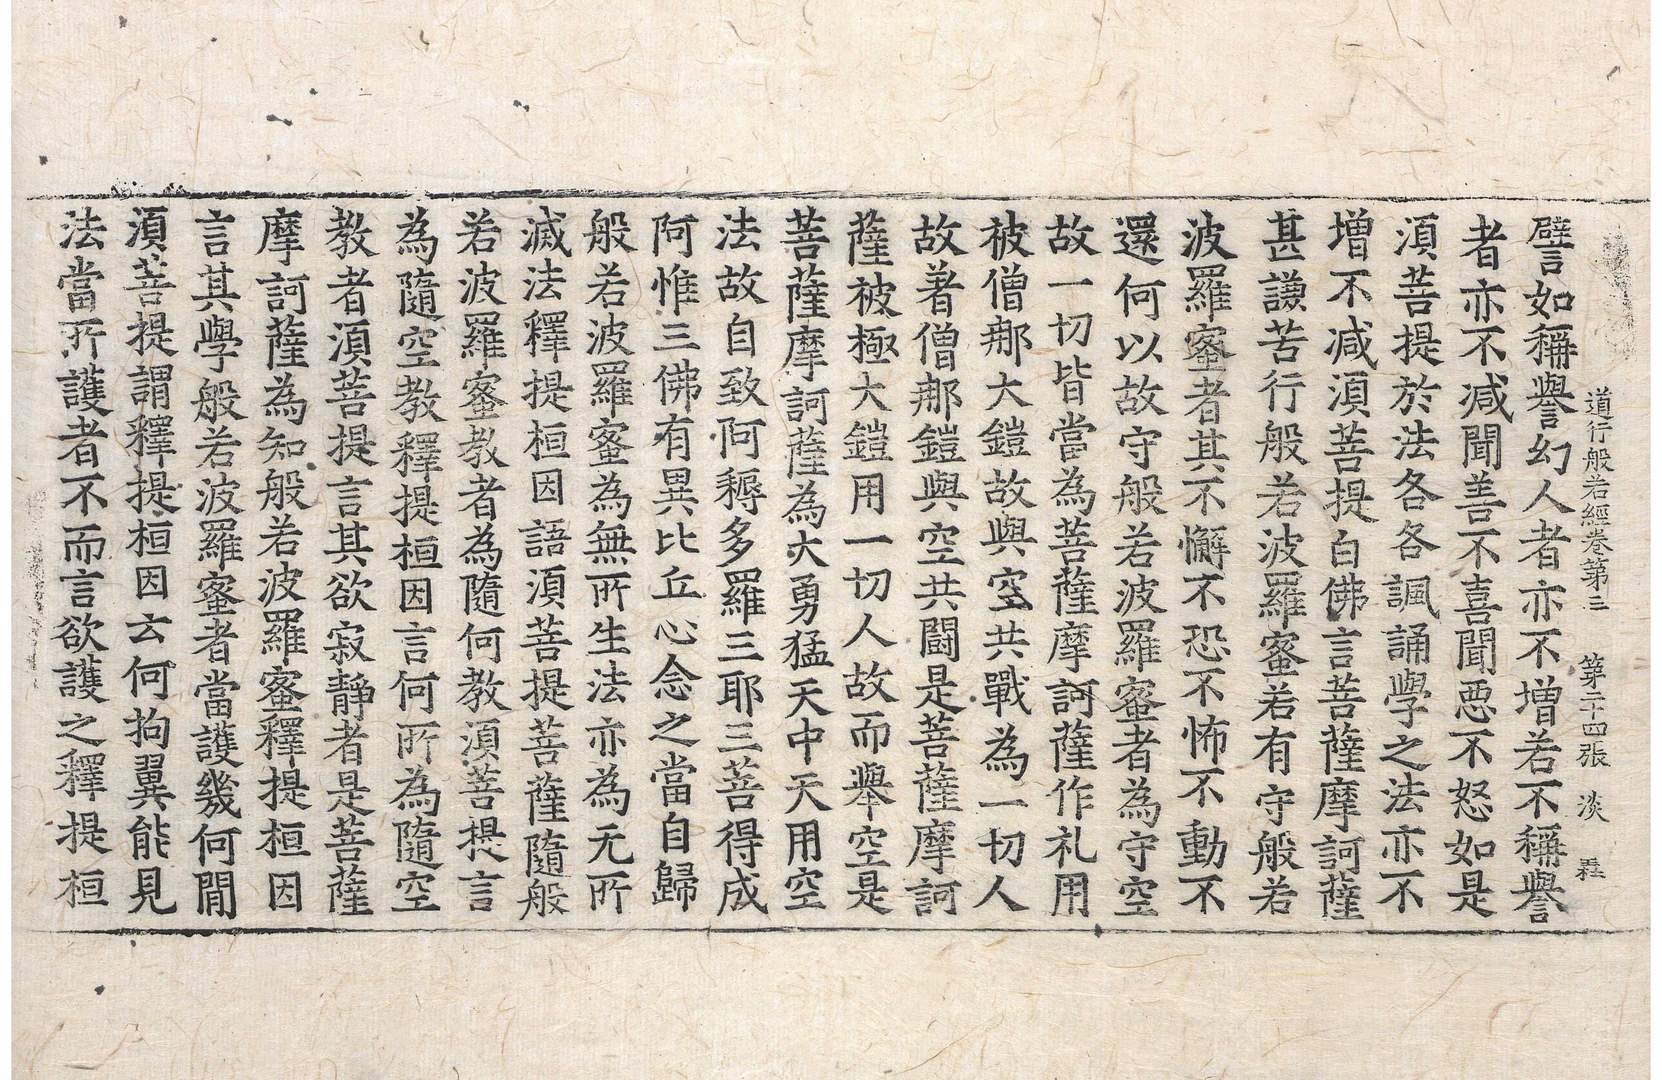 道行般若經卷第三 第二十四張 淡
譬如稱譽幻人者亦不增若不稱譽
者亦不減聞善不喜聞惡不怒如是
須菩提於法各各諷誦學之法亦不
增不減須菩提白佛言菩薩摩訶薩
甚謙苦行般若波羅蜜若有守般若
波羅蜜者其不懈不恐不怖不動不
還何以故守般若波羅蜜者為守空
故一切皆當為菩薩摩訶薩作礼用
被僧那大鎧故與空共戰為一切人
故著僧那鎧與空共鬪是菩薩摩訶
薩被極大鎧用一切人故而舉空是
菩薩摩訶薩為大勇猛天中天用空
法故自致阿耨多羅三耶三菩得成
阿惟三佛有異比丘心念之當自歸
般若波羅蜜為無所生法亦為无所
滅法釋提桓因語須菩提菩薩隨般
若波羅蜜教者為隨何教須菩提言
為隨空教釋提桓因言何所為隨空
教者須菩提言其欲寂靜者是菩薩
摩訶薩為知般若波羅蜜釋提桓因
言其學般若波羅蜜者當護幾何閒
須菩提謂釋提桓因云何拘翼能見
法當所護者不而言欲護之釋提桓